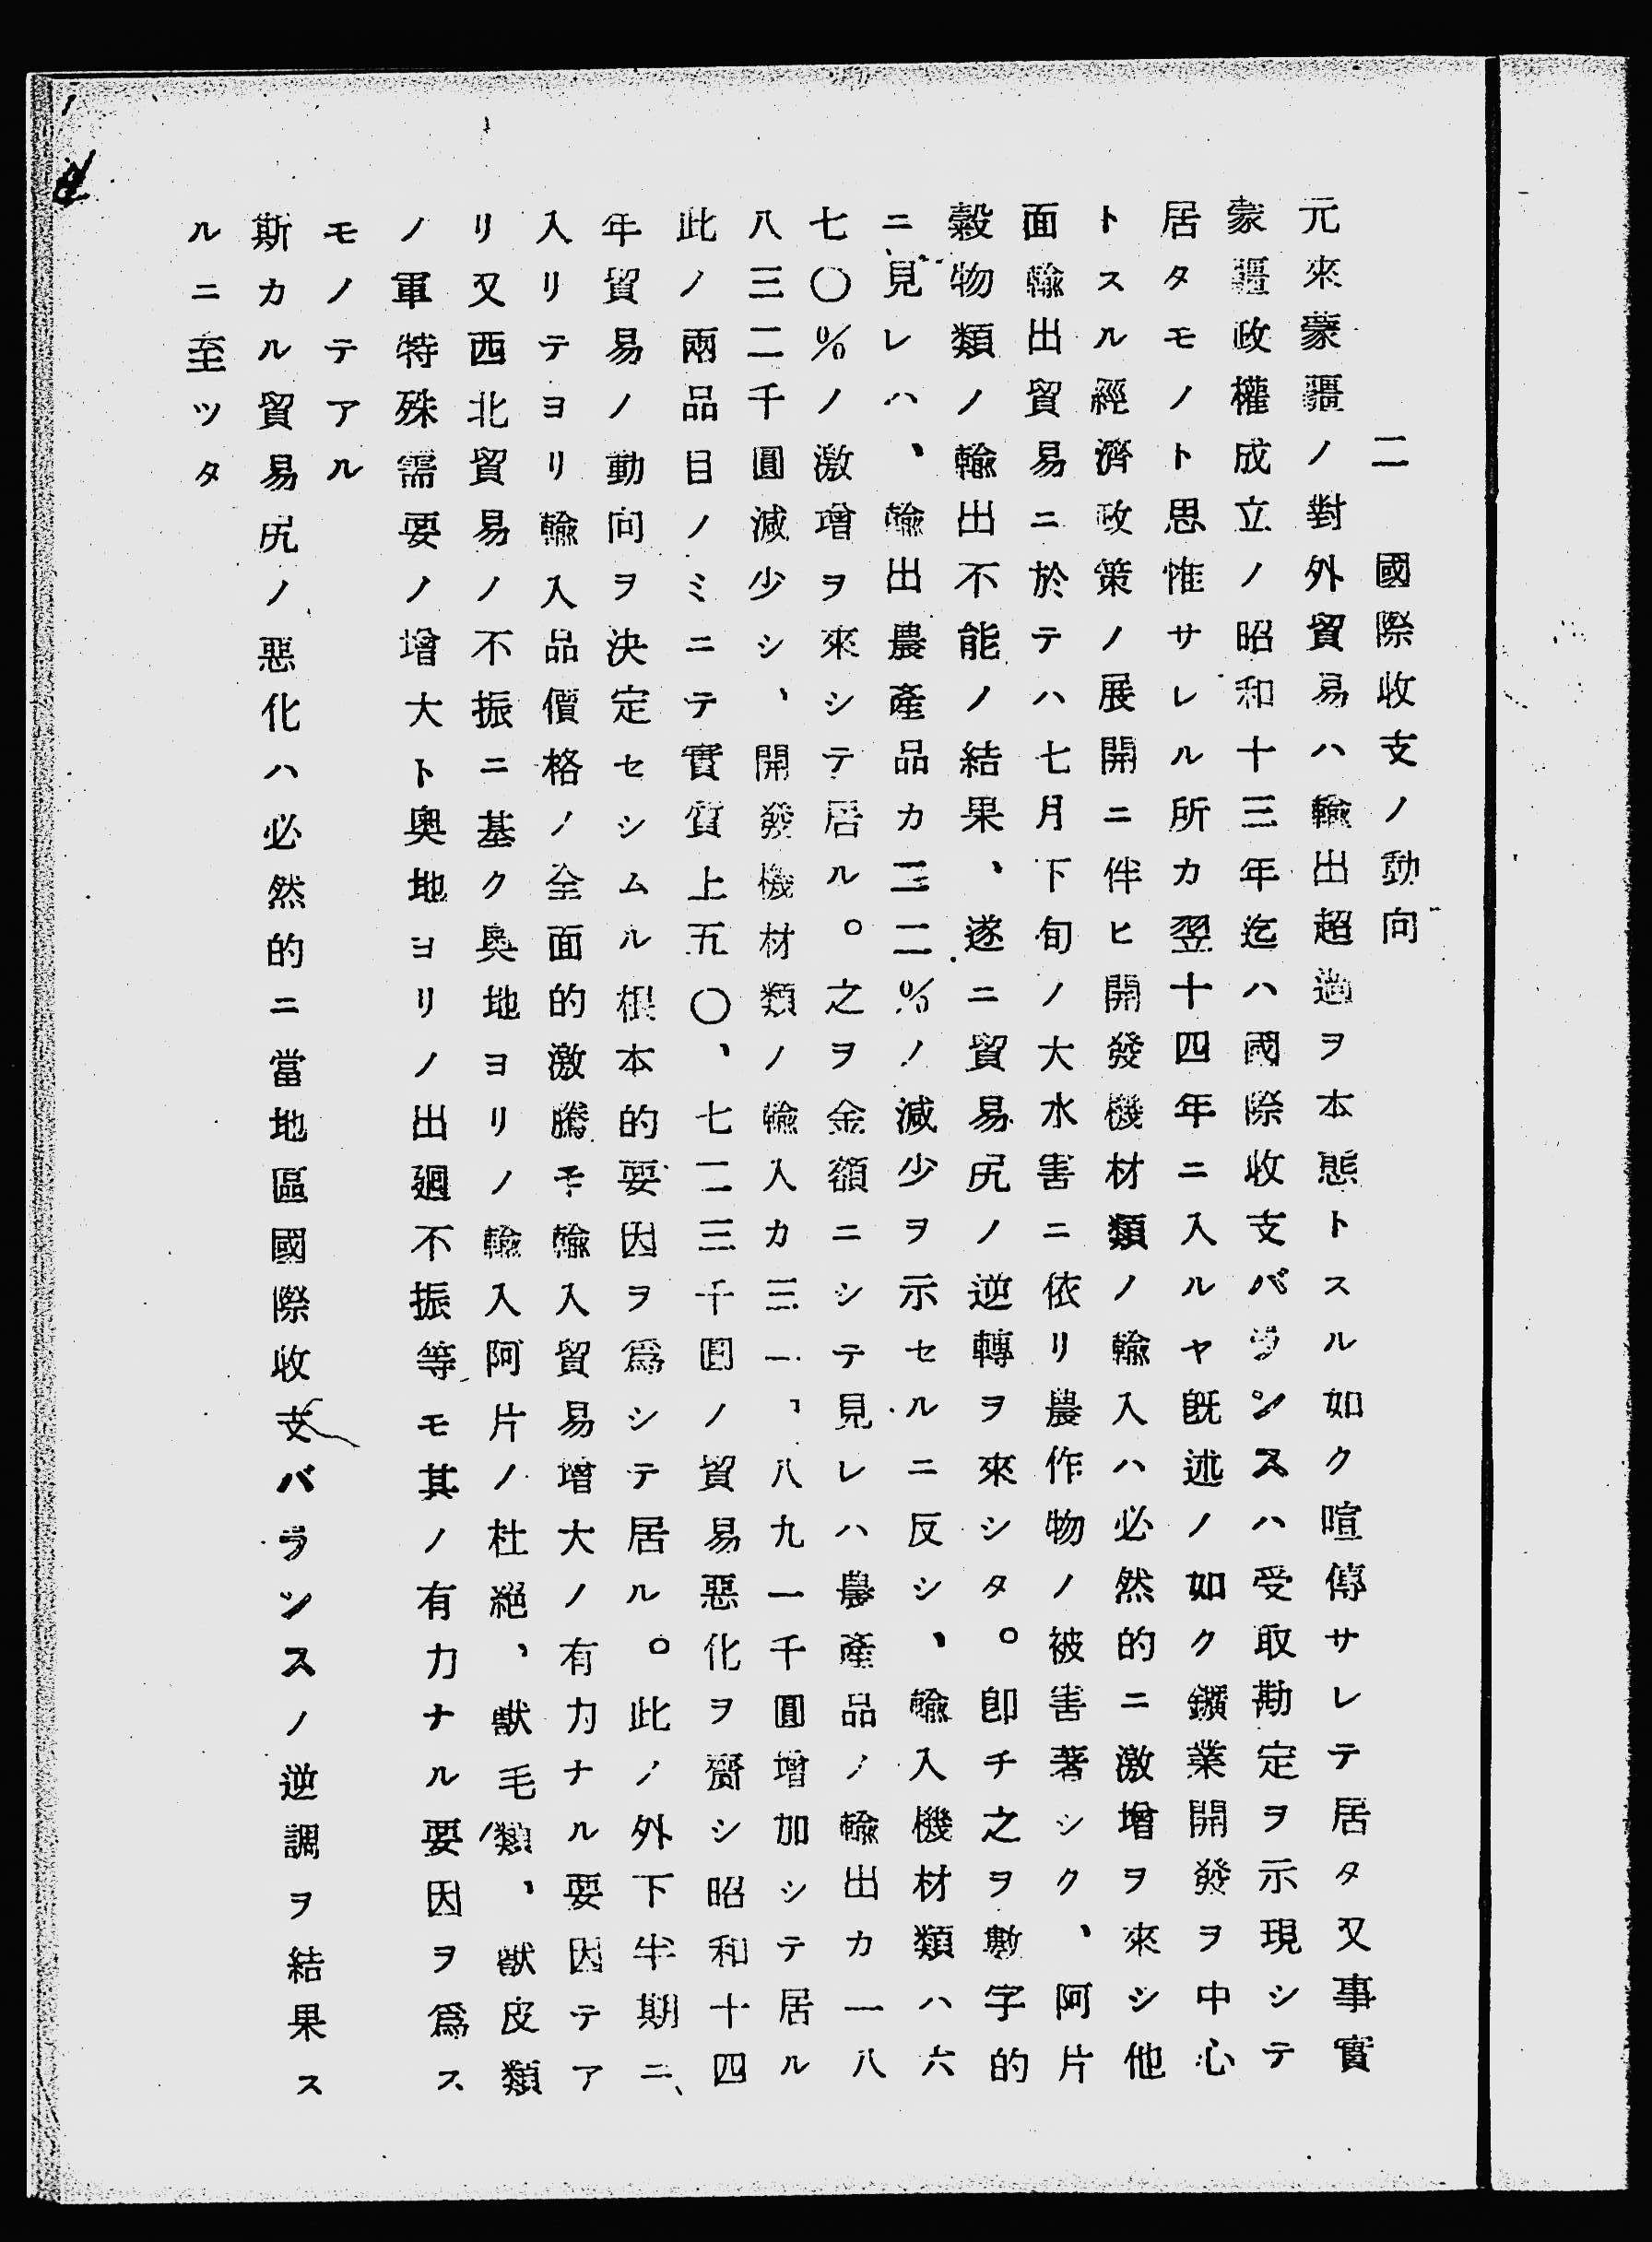 二　國際收支ノ動向
元來蒙疆ノ對外貿易ハ輸出超過ヲ本態トスル如ク喧傳サレテ居タ又事實
蒙疆政權成立ノ昭和十三年迄ハ國際收支バランスハ受取勘定ヲ示現シテ
居タモノト思惟サレル所カ翌十四年ニ入ルヤ既述ノ如ク鑛業開發ヲ中心
トスル經濟政策ノ展開ニ伴ヒ開發機材類ノ輸入ハ必然的ニ激增ヲ來シ他
面輸出貿易ニ於テハ七月下旬ノ大水害ニ依リ農作物ノ被害著シク、阿片
穀物類ノ輸出不能ノ結果、遂ニ貿易尻ノ逆轉ヲ來シタ。卽チ之ヲ數字的
ニ見レハ、輸出農產品カ三二％ノ減少ヲ示セルニ反シ、輸入機材類ハ六
七〇％ノ激增ヲ來シテ居ル。之ヲ金額ニシテ見レハ農產品ノ輸出カ一八
八三二千圓減少シ、開發機材類ノ輸入カ三一、八九一千圓增加シテ居ル
此ノ兩品目ノミニテ實質上五〇、七二三千圓ノ貿易惡化ヲ齎シ昭和十四
年貿易ノ動向ヲ決定セシムル根本的要因ヲ爲シテ居ル。此ノ外下半期ニ、
入リテヨリ輸入品價格ノ全面的激騰モ輸入貿易增大ノ有力ナル要因テア
リ又西北貿易ノ不振ニ基ク奥地ヨリノ輸入阿片ノ杜絕、獸毛類、獸皮類
ノ軍特殊需要ノ增大ト奥地ヨリノ出廻不振等モ其ノ有力ナル要因ヲ爲ス
モノテアル
斯カル貿易尻ノ惡化ハ必然的ニ當地區國際收支バランスノ逆調ヲ結果ス
ルニ至ツタ